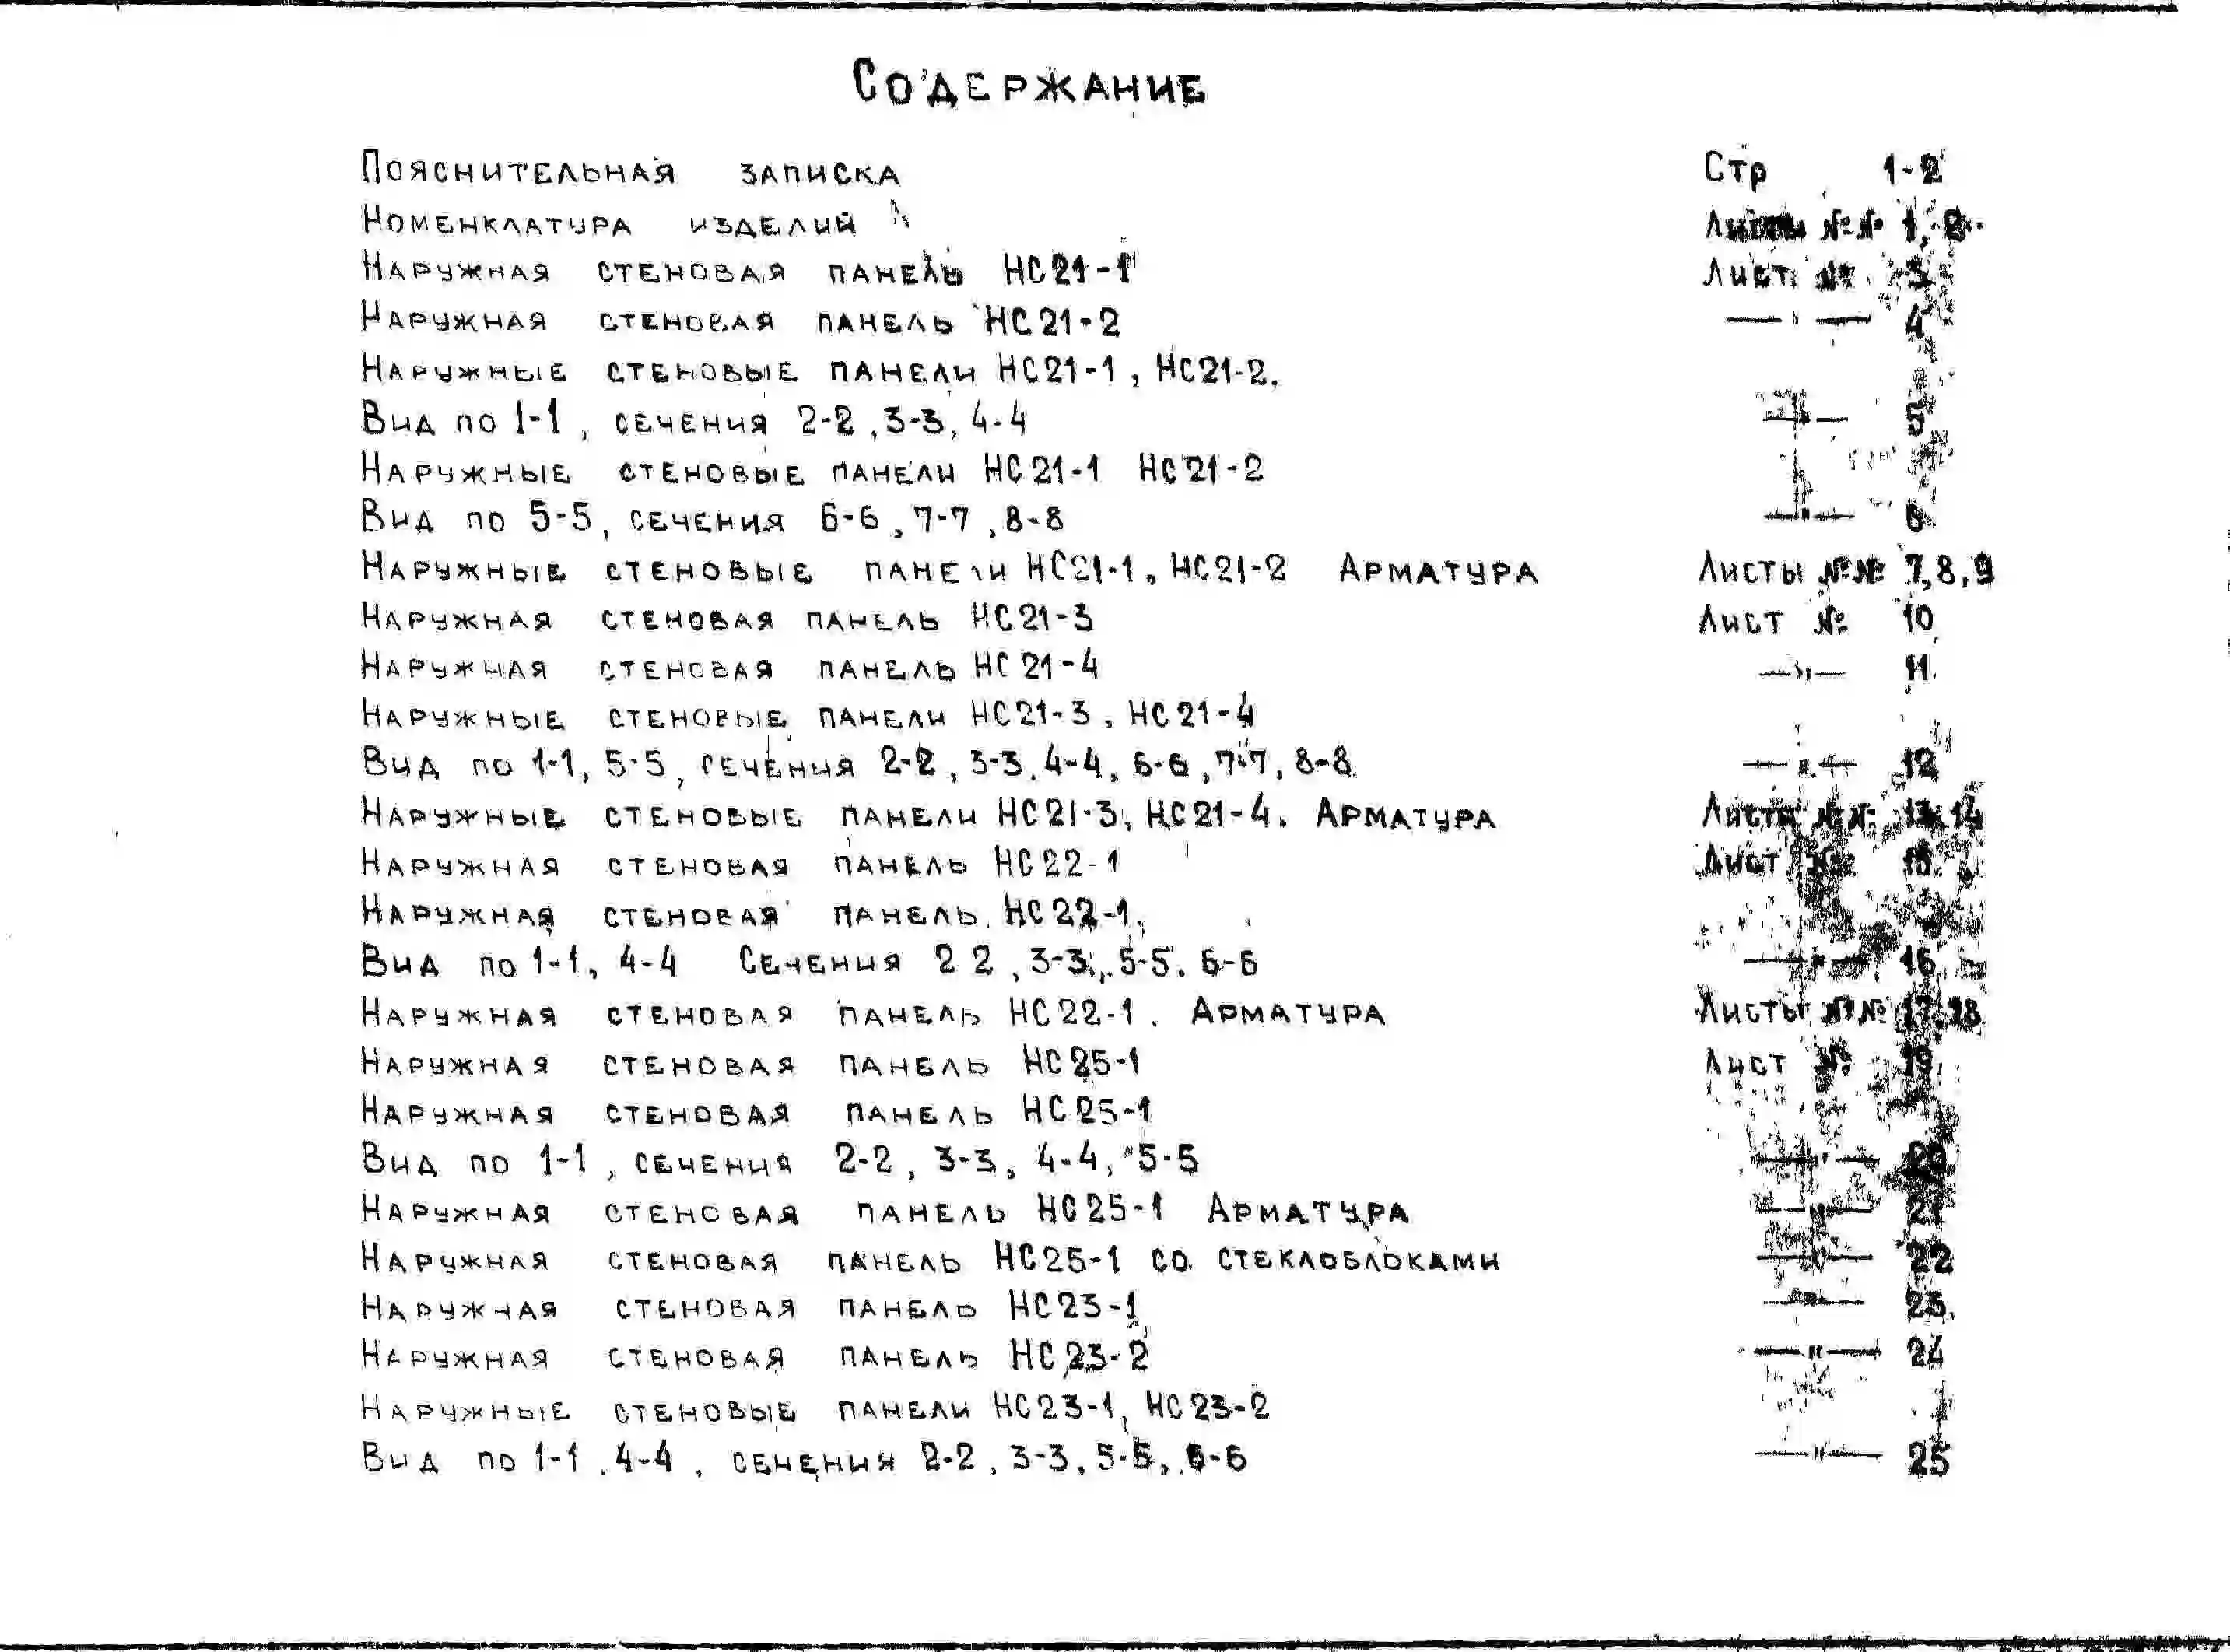 Содержание
Пояснительная записка Стр 1-2
Номенклатура изделий Листы №№ 1, 2
Наружная стеновая панель НС21-1 Лист № 3
Наружная стеновая панель НС21-2 —"— 4
Наружные стеновые панели НС21-1, НС21-2.
Вид по 1-1, сечения 2-2, 3-3, 4-4 —"— 5
Наружные стеновые панели НС21-1 НС21-2
Вид по 5-5, сечения 6-6, 7-7, 8-8 —"— 6
Наружные стеновые панели НС21-1, НС21-2 Арматура Листы №№ 7,8,9
Наружная стеновая панель НС21-3 Лист № 10
Наружная стеновая панель НС21-4 —"— 11
Наружные стеновые панели НС21-3, НС21-4
Вид по 1-1, 5-5, сечения 2-2, 3-3, 4-4, 6-6, 7-7, 8-8 —"— 12
Наружные стеновые панели НС21-3, НС21-4. Арматура Листы №№ 13,14
Наружная стеновая панель НС22-1 Лист № 15
Наружная стеновая панель НС22-1.
Вид по 1-1, 4-4 Сечения 2 2, 3-3, 5-5. 6-6 —"— 16
Наружная стеновая панель НС22-1. Арматура Листы №№ 17,18
Наружная стеновая панель НС25-1 Лист № 19
Наружная стеновая панель НС25-1
Вид по 1-1, сечения 2-2, 3-3, 4-4, 5-5 —"— 20
Наружная стеновая панель НС25-1 Арматура —"— 21
Наружная стеновая панель НС25-1 со стеклоблоками —"— 22
Наружная стеновая панель НС23-1 —"— 23
Наружная стеновая панель НС23-2 —"— 24
Наружные стеновые панели НС23-1, НС23-2
Вид по 1-1, 4-4, сечения 2-2, 3-3, 5-5, 6-6 —"— 25